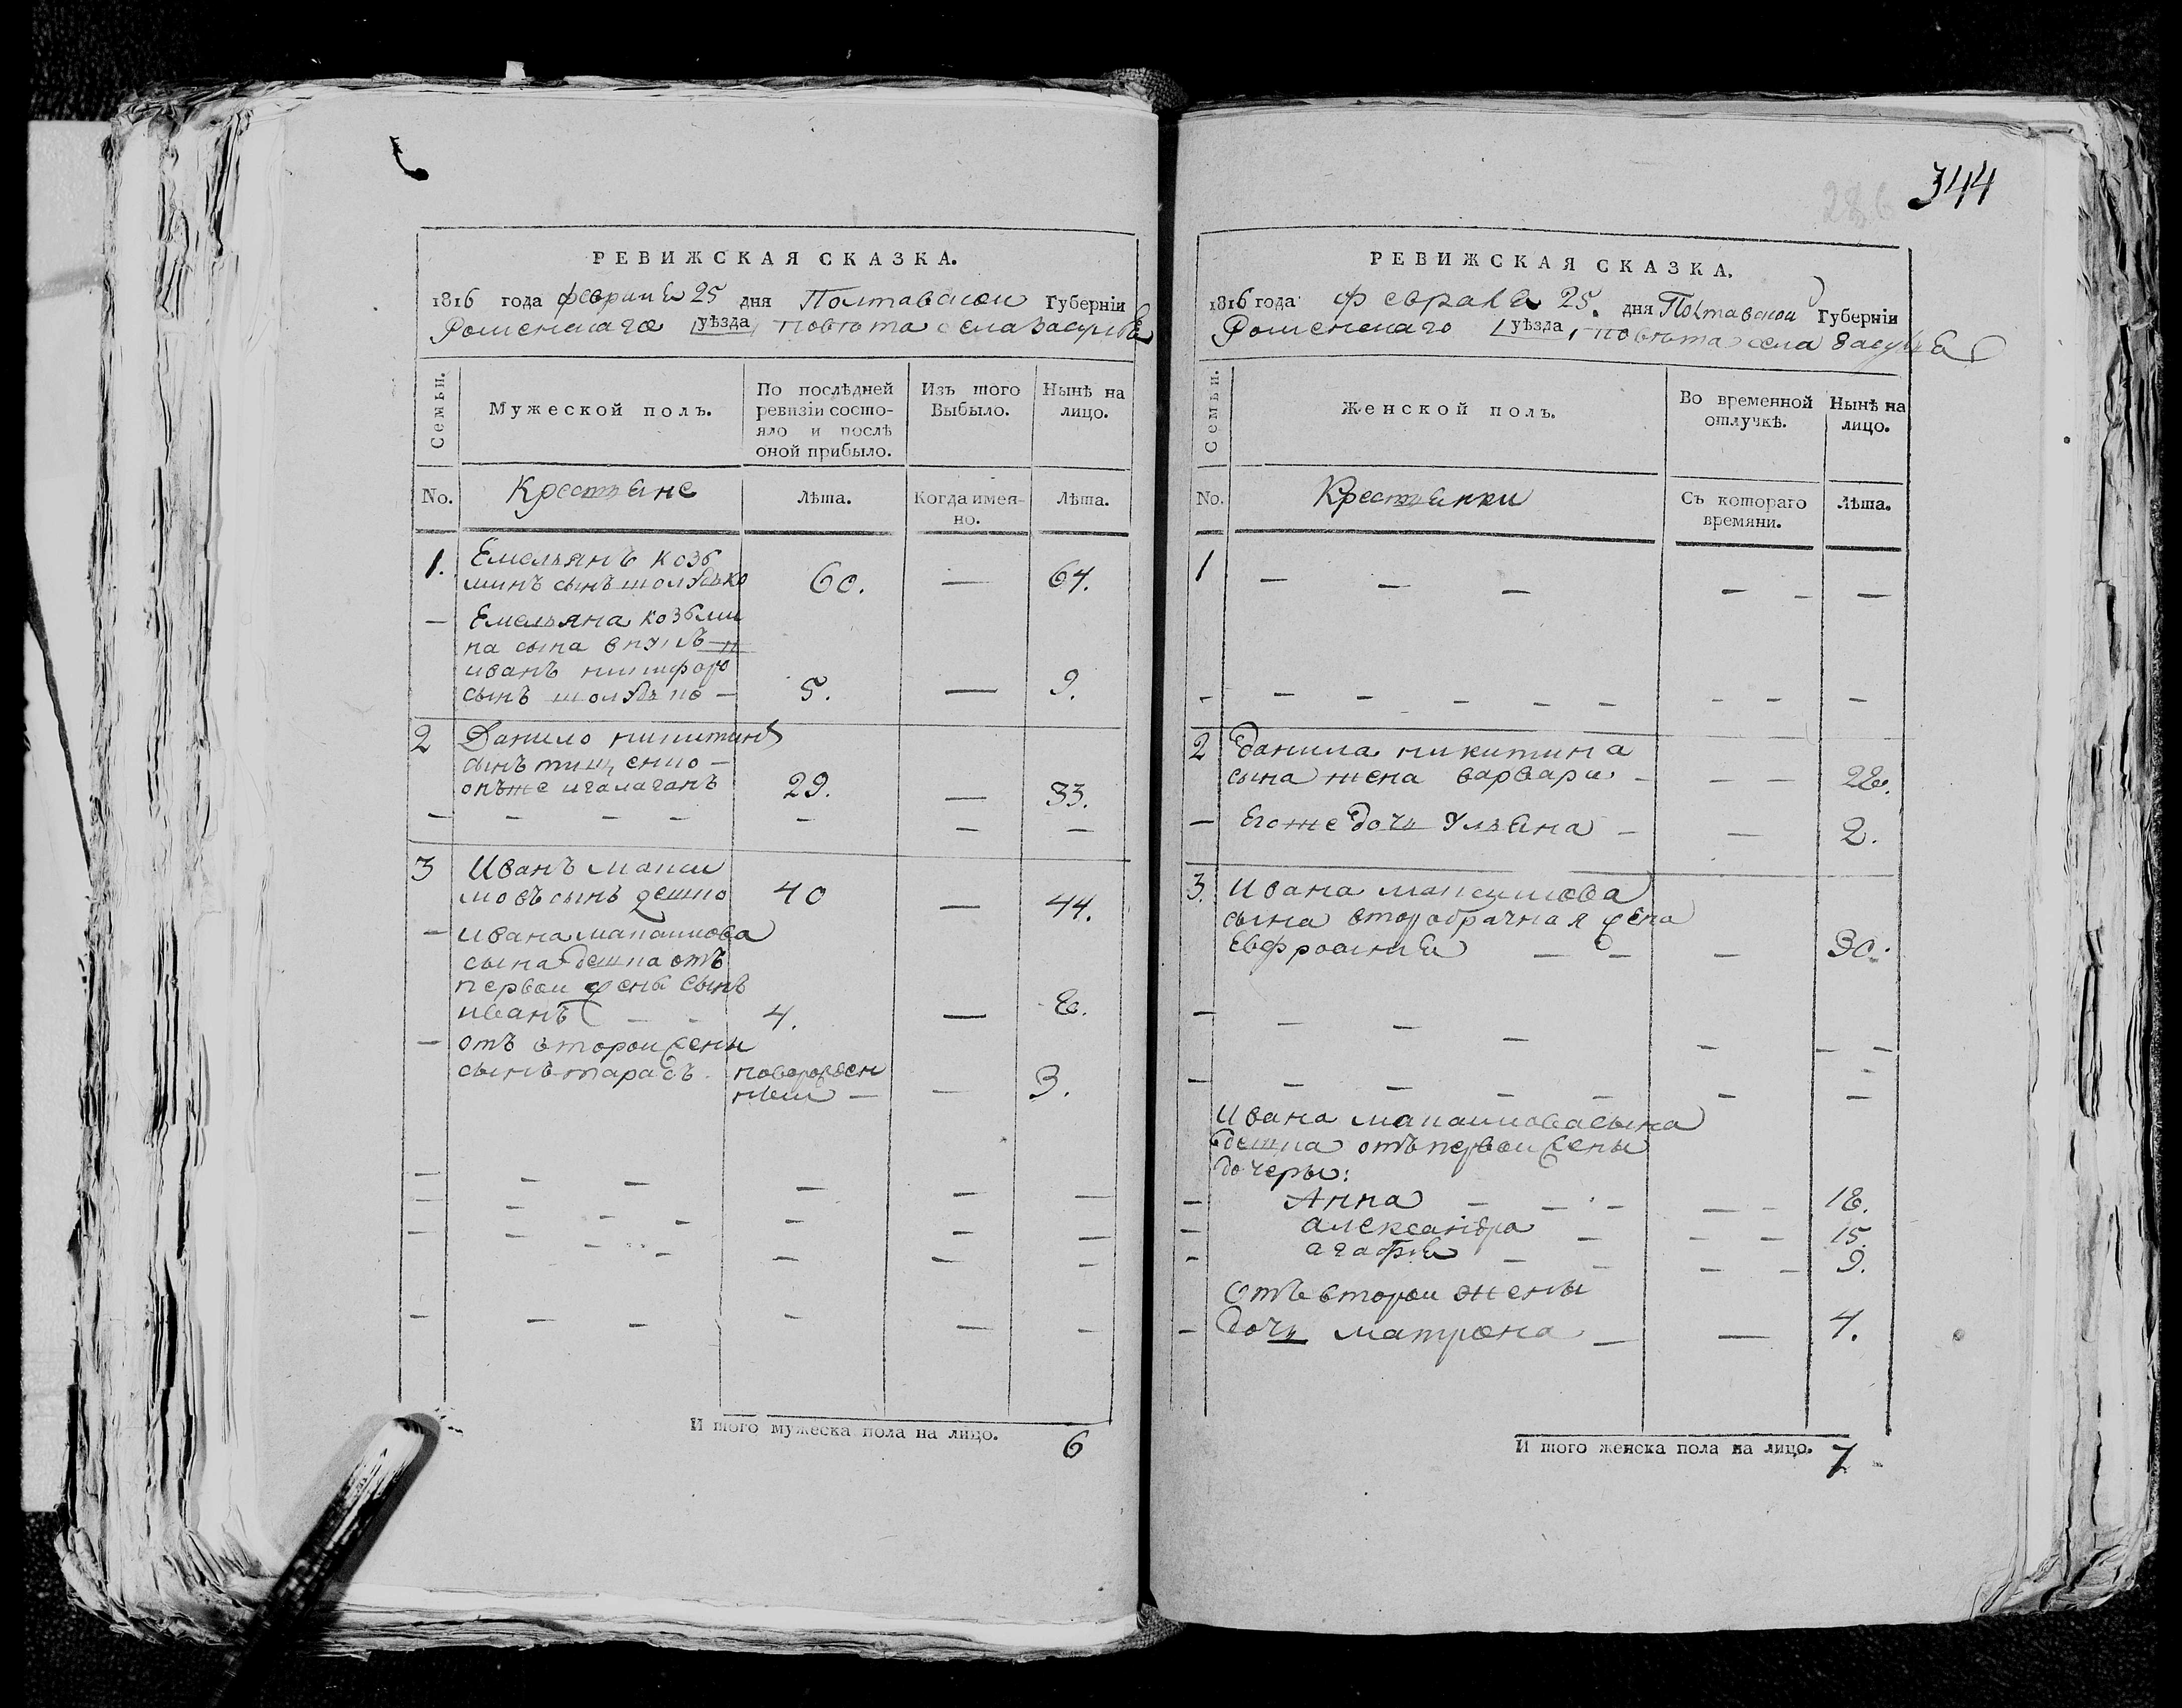 РЕВИЖСКАЯ СКАЗКА.
1816 года февраля 25 дня Полтавской Губерніи
Роменскаго уѣзда повѣта села Засулья
Семьи.
Мужеской полъ.
По послѣдней ревизіи состояло и послѣ оной прибыло.
Изъ того Выбыло.
Нынѣ на лицо.
No.
Крестьяне
Лѣта.
Когда имеянно.
Лѣта.
1. Емельянъ козб
минъ сынъ 60. — 64.
— Емельяна козбми
на сына внукъ
иванъ никифоро
сынъ 5. — 9.
2 Данило никитинъ
сынъ тищенко —
онъже игалаганъ 29. — 33.
— — — — — — —
3 Иванъ макси
мовъ сынъ дешко 40 — 44.
— ивана максимова
сына дешка отъ
первой жены сынъ
иванъ — — 4. — 8.
— отъ второй жены
сынъ тарасъ новорожден
ный — — 3.
И того мужеска пола на лицо. 6
344
РЕВИЖСКАЯ СКАЗКА.
1816 года февраля 25. дня Полтавской Губерніи
Роменскаго уѣзда повѣта села Засулья
Семьи.
Женской полъ.
Во временной отлучкѣ.
Нынѣ на лицо.
No.
Крестьянки
Съ котораго времяни.
Лѣта.
1 — — — — — —
2 данила никитина
сына жена варвара — — — 28.
— Егоже дочь Ульяна — — 2.
3. Ивана максимова
сына второбрачная жена
Евфросинія — — — 30.
Ивана максимова сына
дешка отъ первой жены
дочеры:
— Анна — — — 18.
— александра — — — 15.
— агафія — — — 9.
отъ второй жены
— дочь матрона — — 4.
И того женска пола на лицо. 7